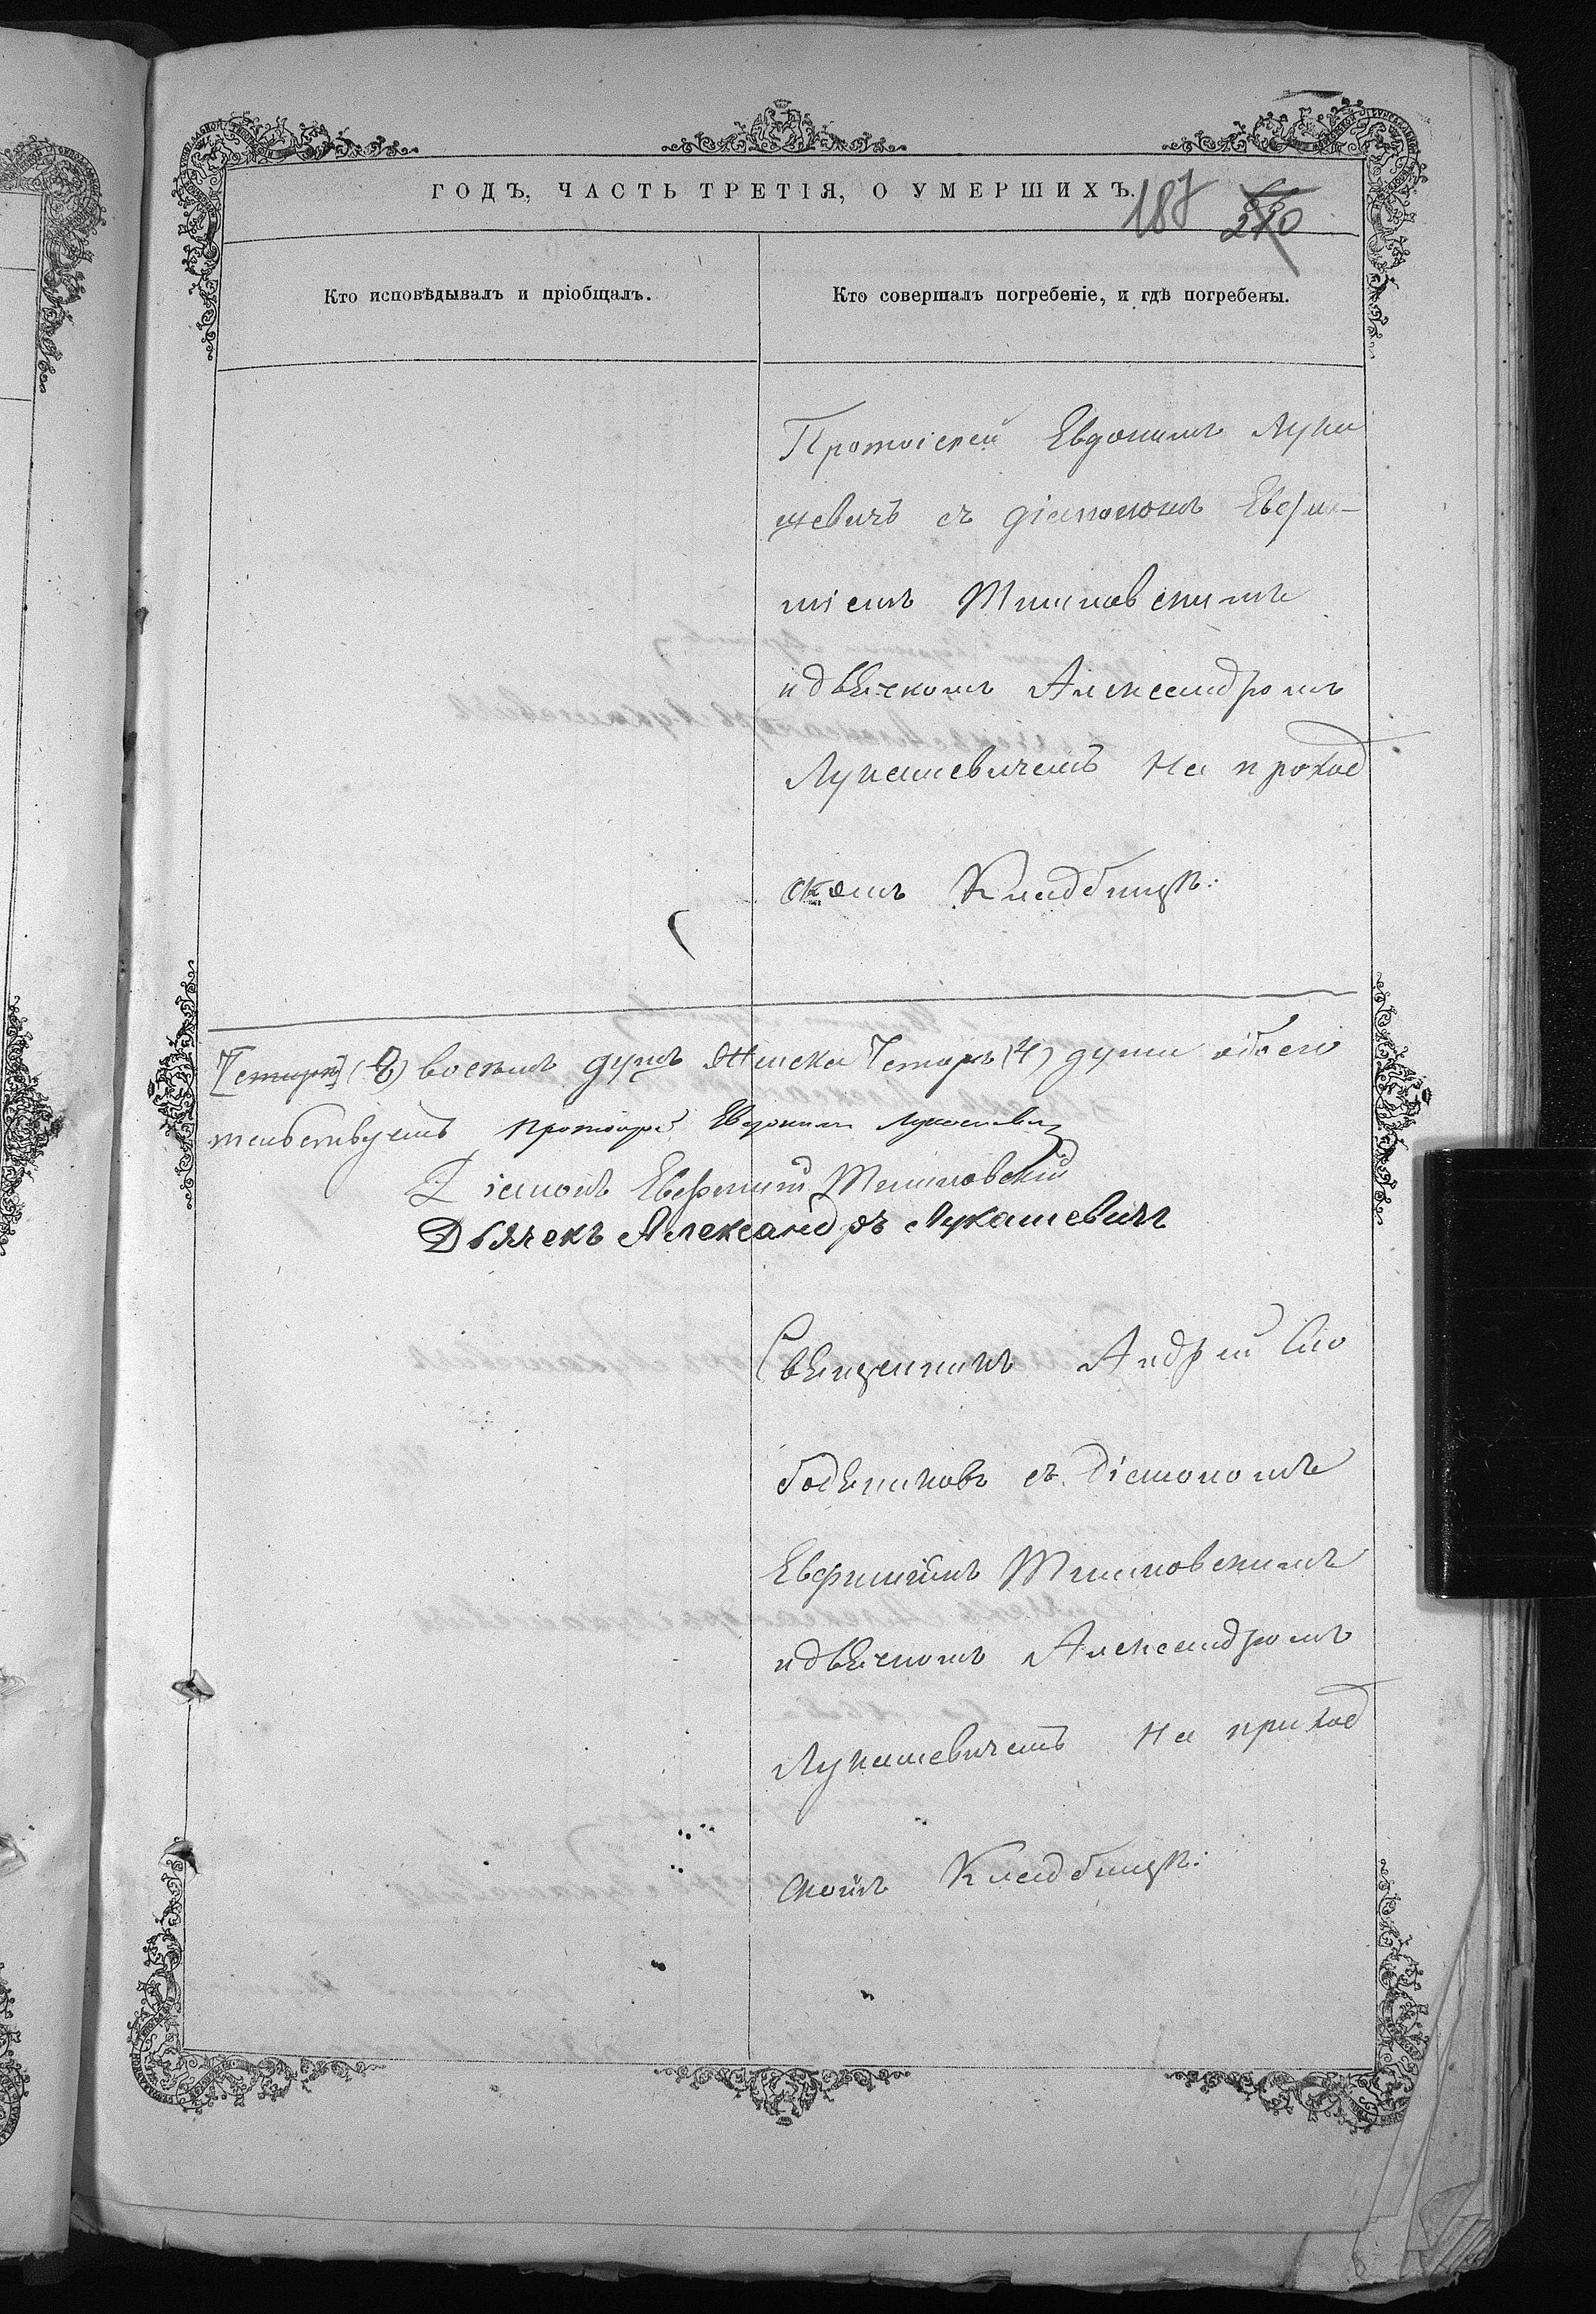 ГОДЪ, ЧАСТЬ ТРЕТІЯ, О УМЕРШИХЪ.
187 210
Кто исповѣдывалъ и пріобщалъ.
Кто совершалъ погребеніе, и гдѣ погребены.
Протоіерей Евдокимъ Лука
шевичъ съ діакономъ Евфи-
міемъ Тимиловскимъ
и дьячкомъ Александромъ
Лукашевичемъ На приход
скомъ Кладбищѣ.
Четыре (8) восемь душъ Женска Четыре (4) души обоего
тельствуемъ Протоіерей Евдокимъ Лукашевичъ
Діаконъ Евфимій Тимиловскій
Дьячекъ Александръ Лукашевичъ
Священникъ Андрей Сло
бодениковъ съ Діакономъ
Евфиміемъ Тимиловскимъ
и дьячкомъ Александромъ
Лукашевичемъ На приход
скомъ Кладбищѣ.